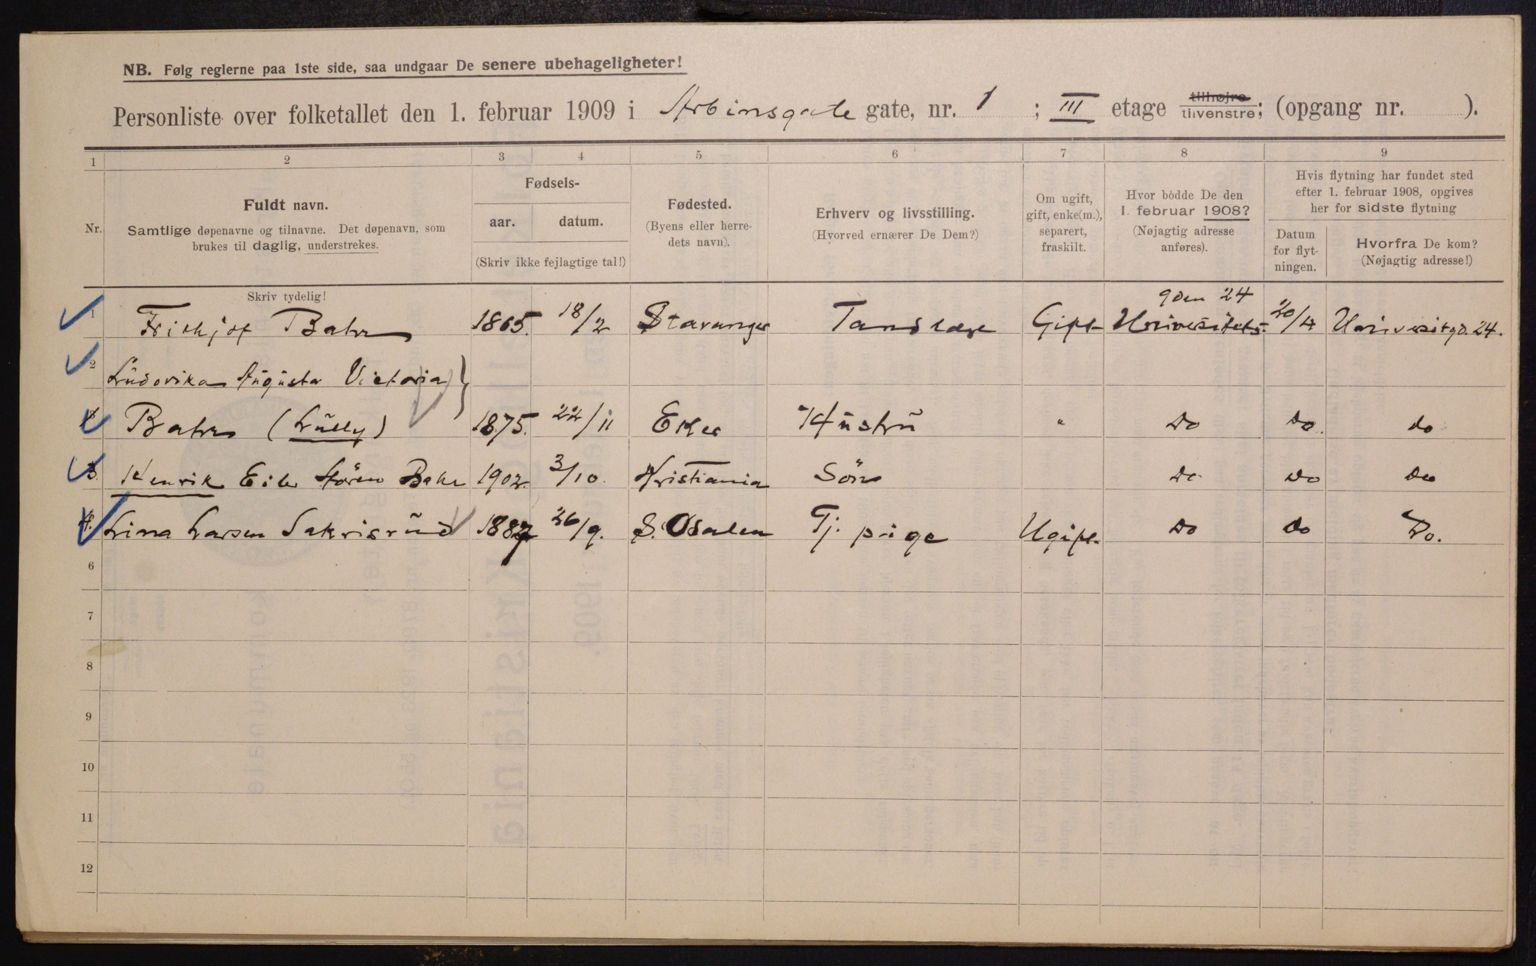 NB. Følg reglerne paa 1ste side, saa undgaar De senere ubehageligheter!
Personliste over folketallet den 1. februar 1909 i Arbinsgate gate, nr. 1 ; III etage tilhøjre tilvenstre; (opgang nr. ).
1 2 3 4 5 6 7 8 9
Nr.
Fuldt navn.
Samtlige døpenavne og tilnavne. Det døpenavn, som
brukes til daglig, understrekes.
Fødsels-
aar. datum.
(Skriv ikke fejlagtige tal!)
Fødested.
(Byens eller herre-
dets navn).
Erhverv og livsstilling.
(Hvorved ernærer De Dem?)
Om ugift,
gift, enke(m.),
separert,
fraskilt.
Hvor bodde De den
1. februar 1908?
(Nøjagtig adresse
anføres).
Hvis flytning har fundet sted
efter 1. februar 1908, opgives
her for sidste flytning
Datum
for flyt-
ningen.
Hvorfra De kom?
(Nøjagtig adresse!)
Skriv tydelig!
1 Frithjof Bahr 1865. 18/2 Stavanger Tandlæge Gift Universitets- gden 24 20/4 Universitgd. 24.
2 Ludovika Augusta Victoria
Bahr (Lully) 1875. 22/11 Eker Hustru " Do Do. do
3. Henrik Bahr 1902. 3/10. Kristiania Søn Do Do Do
4. Lina Larsen Sakrisrud 1887 26/9. S. Osalen Tj. pige Ugift. Do Do Do.
6
7
8
9
10
11
12